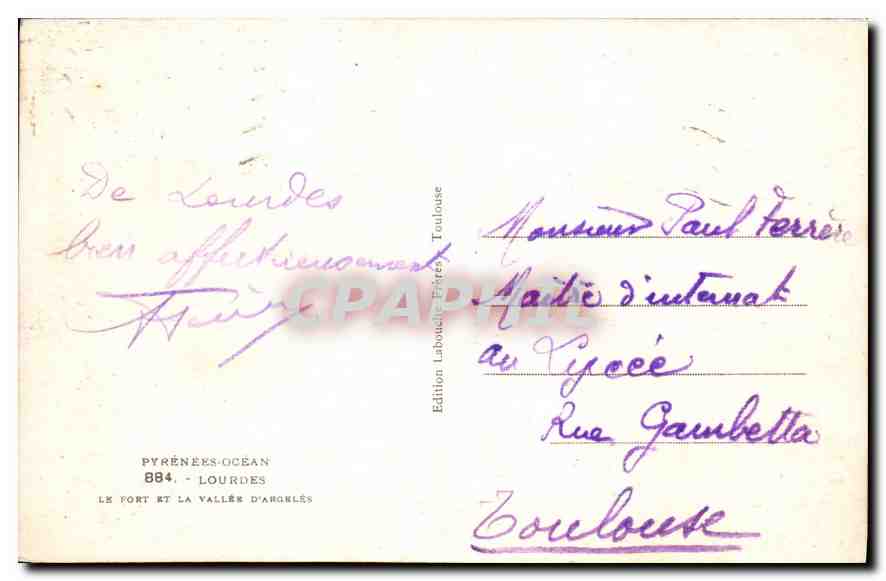 De Lourdes
bien affectueusement
PYRÉNÉES-OCÉAN
884. - LOURDES
LE FORT ET LA VALLÉE D'ARGELÈS
Edition Labouche Frères Toulouse
CPAPHIL
Monsieur Paul Ferrère
Maitre d'internat
au Lycée
Rue Gambetta
Toulouse